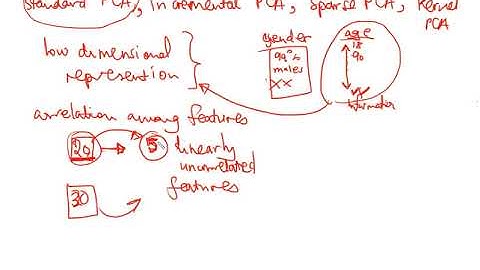 Standard PCA, Incremental PCA, Sparse PCA, Kernel PCA
low dimensional
represention
gender
99%
males
XX
age
18
90
correlation among features
20
5
linearly
uncorrelated
features
30